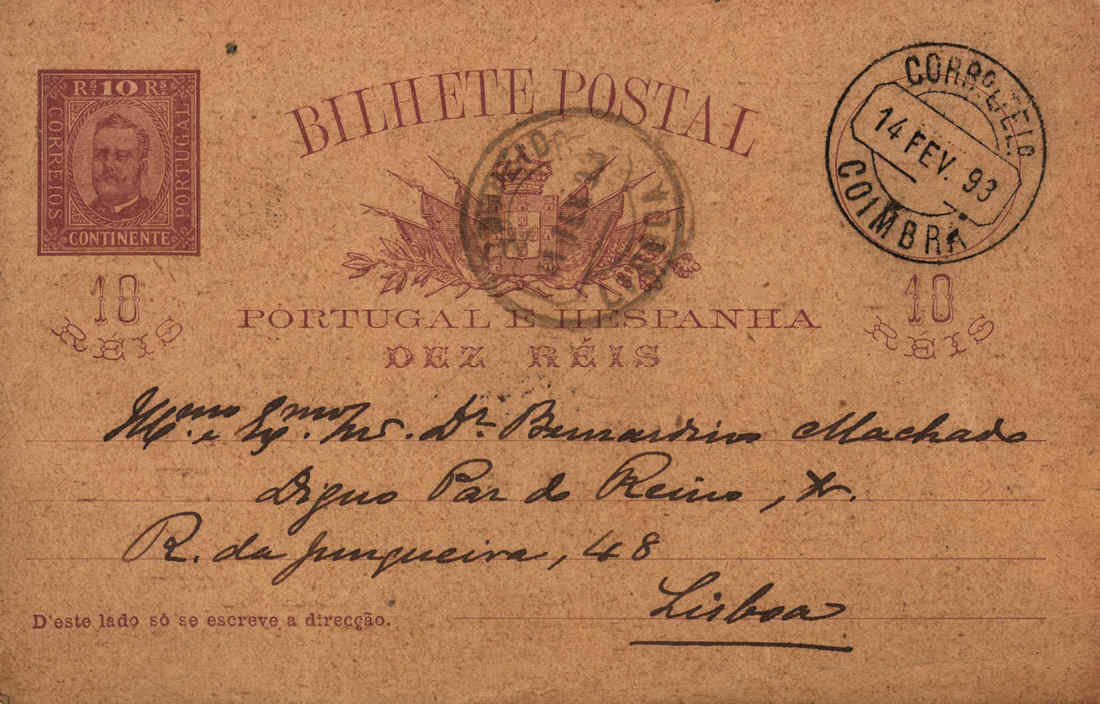 Rs 10 Rs
CORREIOS
PORTUGAL
CONTINENTE
BILHETE POSTAL
CORRO E TELO
14 FEV. 93
COIMBRA
10
RÉIS
10
RÉIS
PORTUGAL E HESPANHA
DEZ RÉIS
Mmo e Exmo Snr. Dr. Bernardino Machado
Digno Par do Reino, &.
R. da Junqueira, 48
Lisboa
D'este lado só se escreve a direcção.